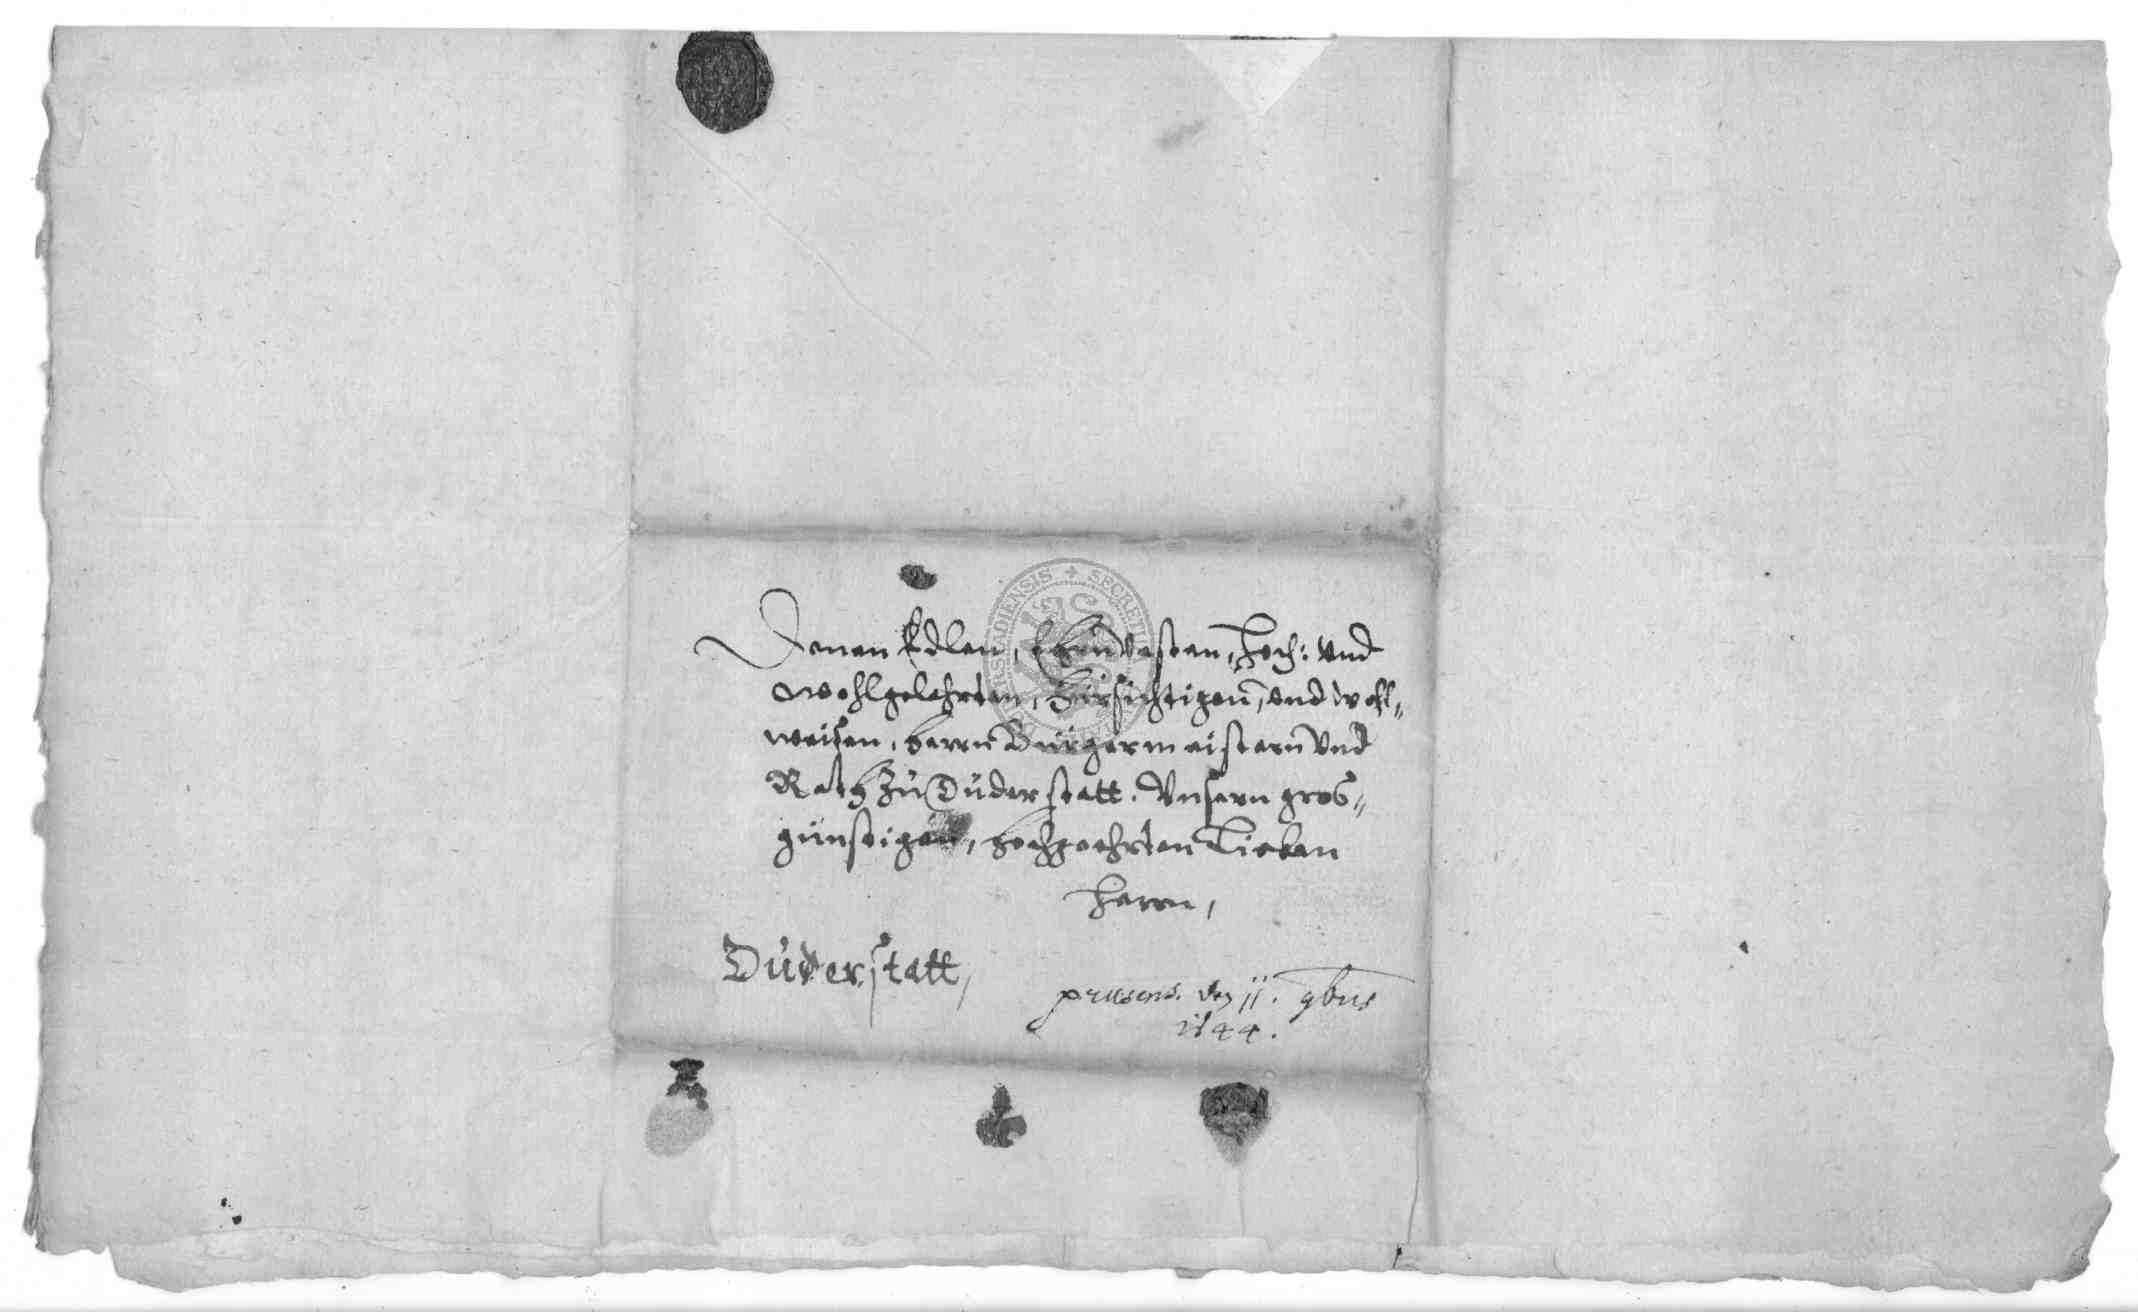 Denen Edlen, Ehrnvesten, Hoch: vnd
Wohlgelehrten, Fürsichtigen, vnd wohl„
weisen, Herrn Bürgermeistern vnd
Rath zu Duderstatt. Vnsern gros„
günstigen, hochgeehrten Lieben
Herrn,
Duderstatt,
præsens. den 11. 9bris
1644.
SECRETU